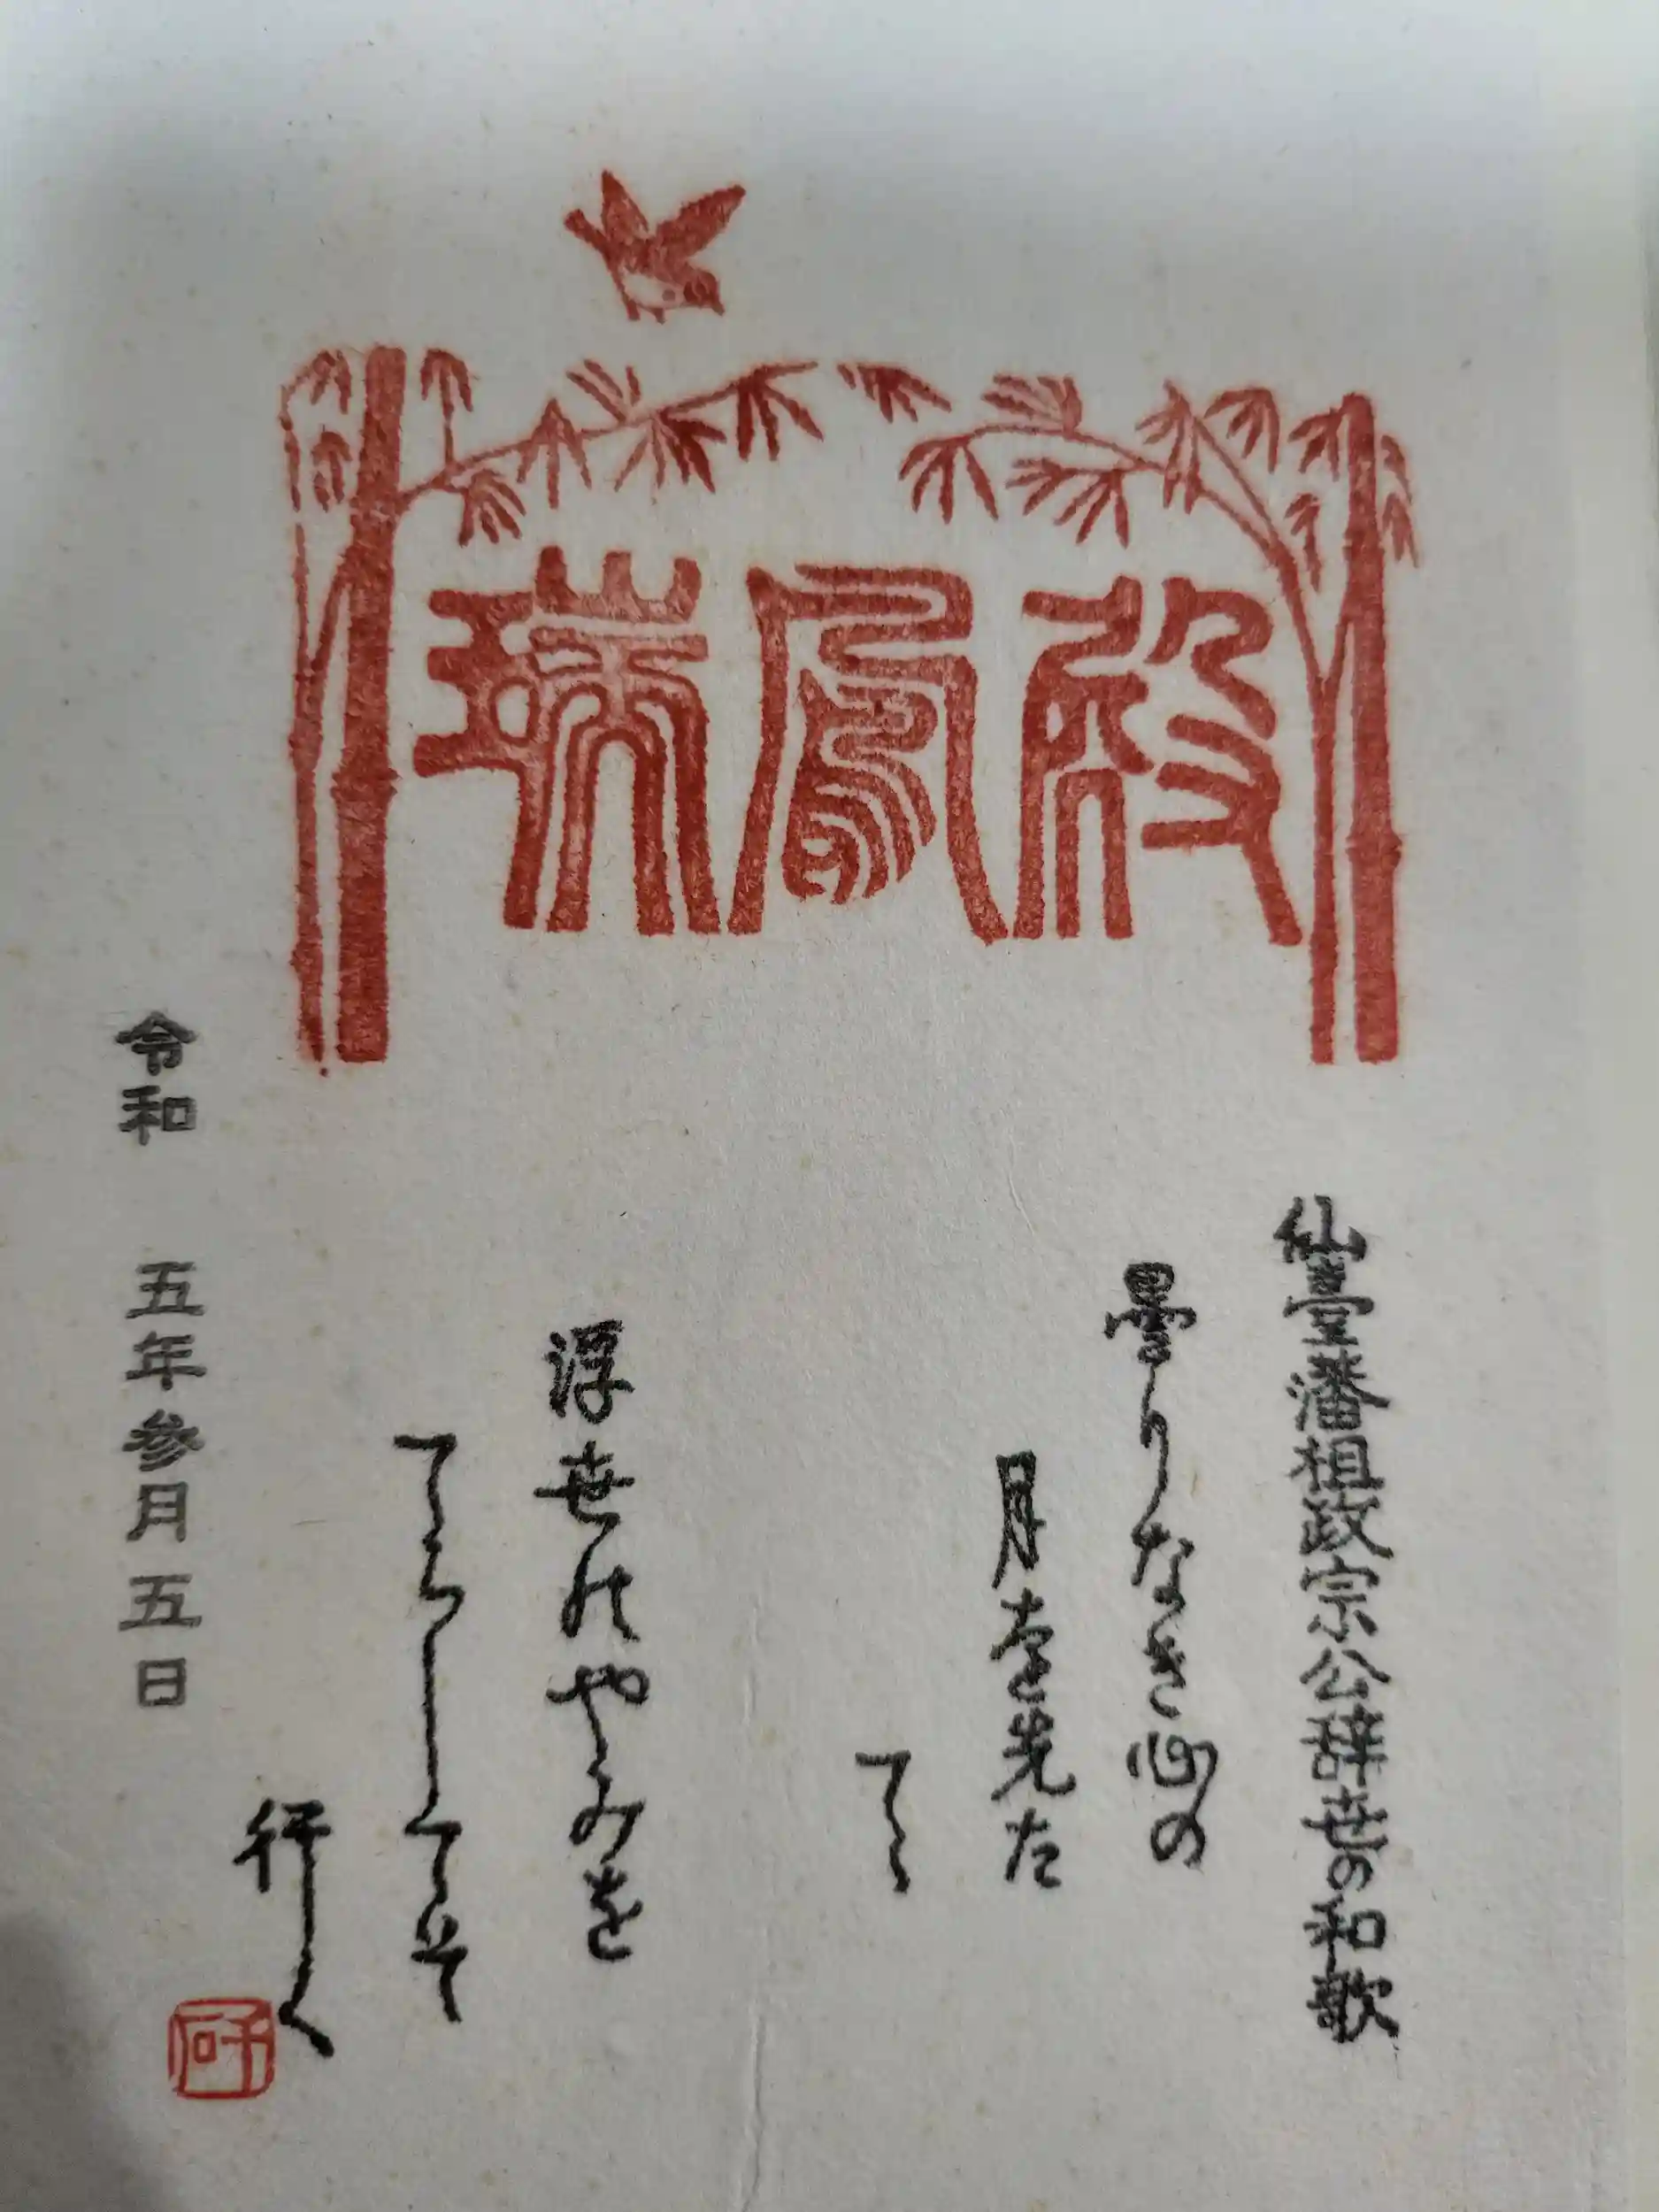 瑞鳳殿
仙臺藩祖政宗公辞世の和歌
曇りなき心の
月を先た
てゝ
浮世のやみを
てらしてそ
行く
令和 五年参月五日